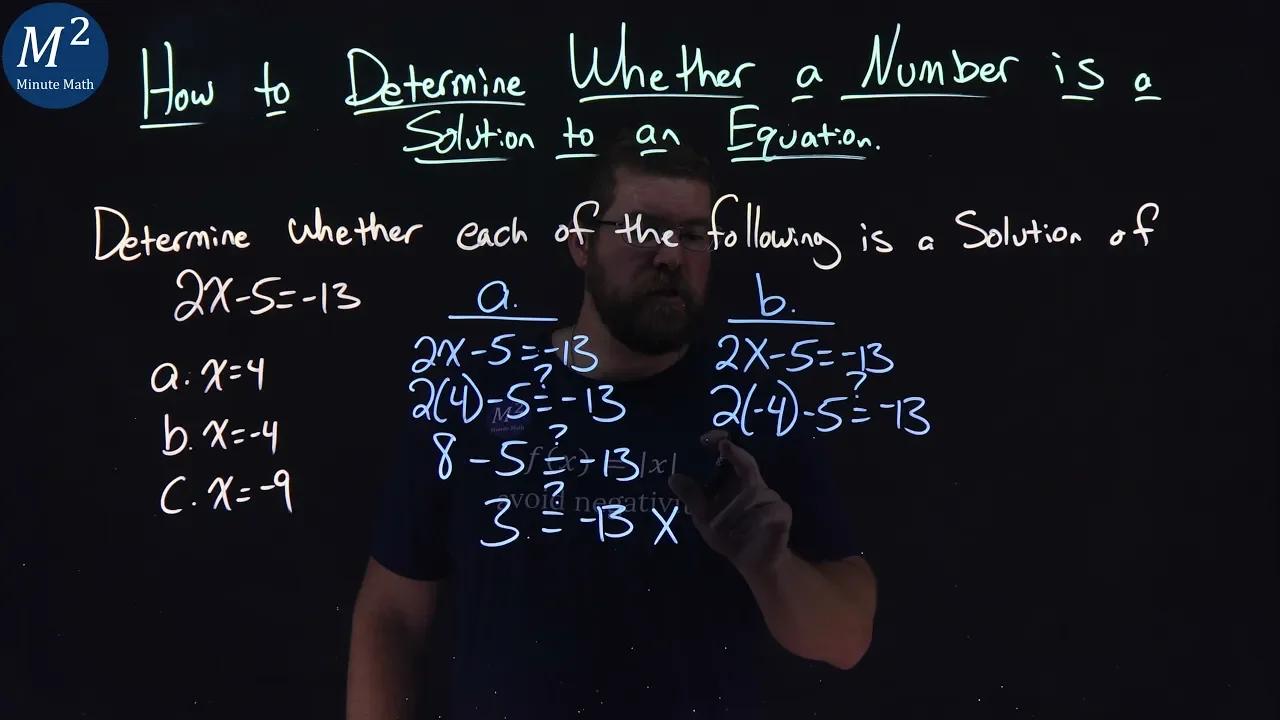 M²
Minute Math
How to Determine Whether a Number is a
Solution to an Equation.
Determine whether each of the following is a Solution of
2x-5=-13
a. x=4
b. x=-4
c. x=-9
a.
2x-5=-13
2(4)-5≟-13
8-5≟-13
3≟-13 X
b.
2x-5=-13
2(-4)-5≟-13
M²
Minute Math
f(x) = |x|
avoid negativit